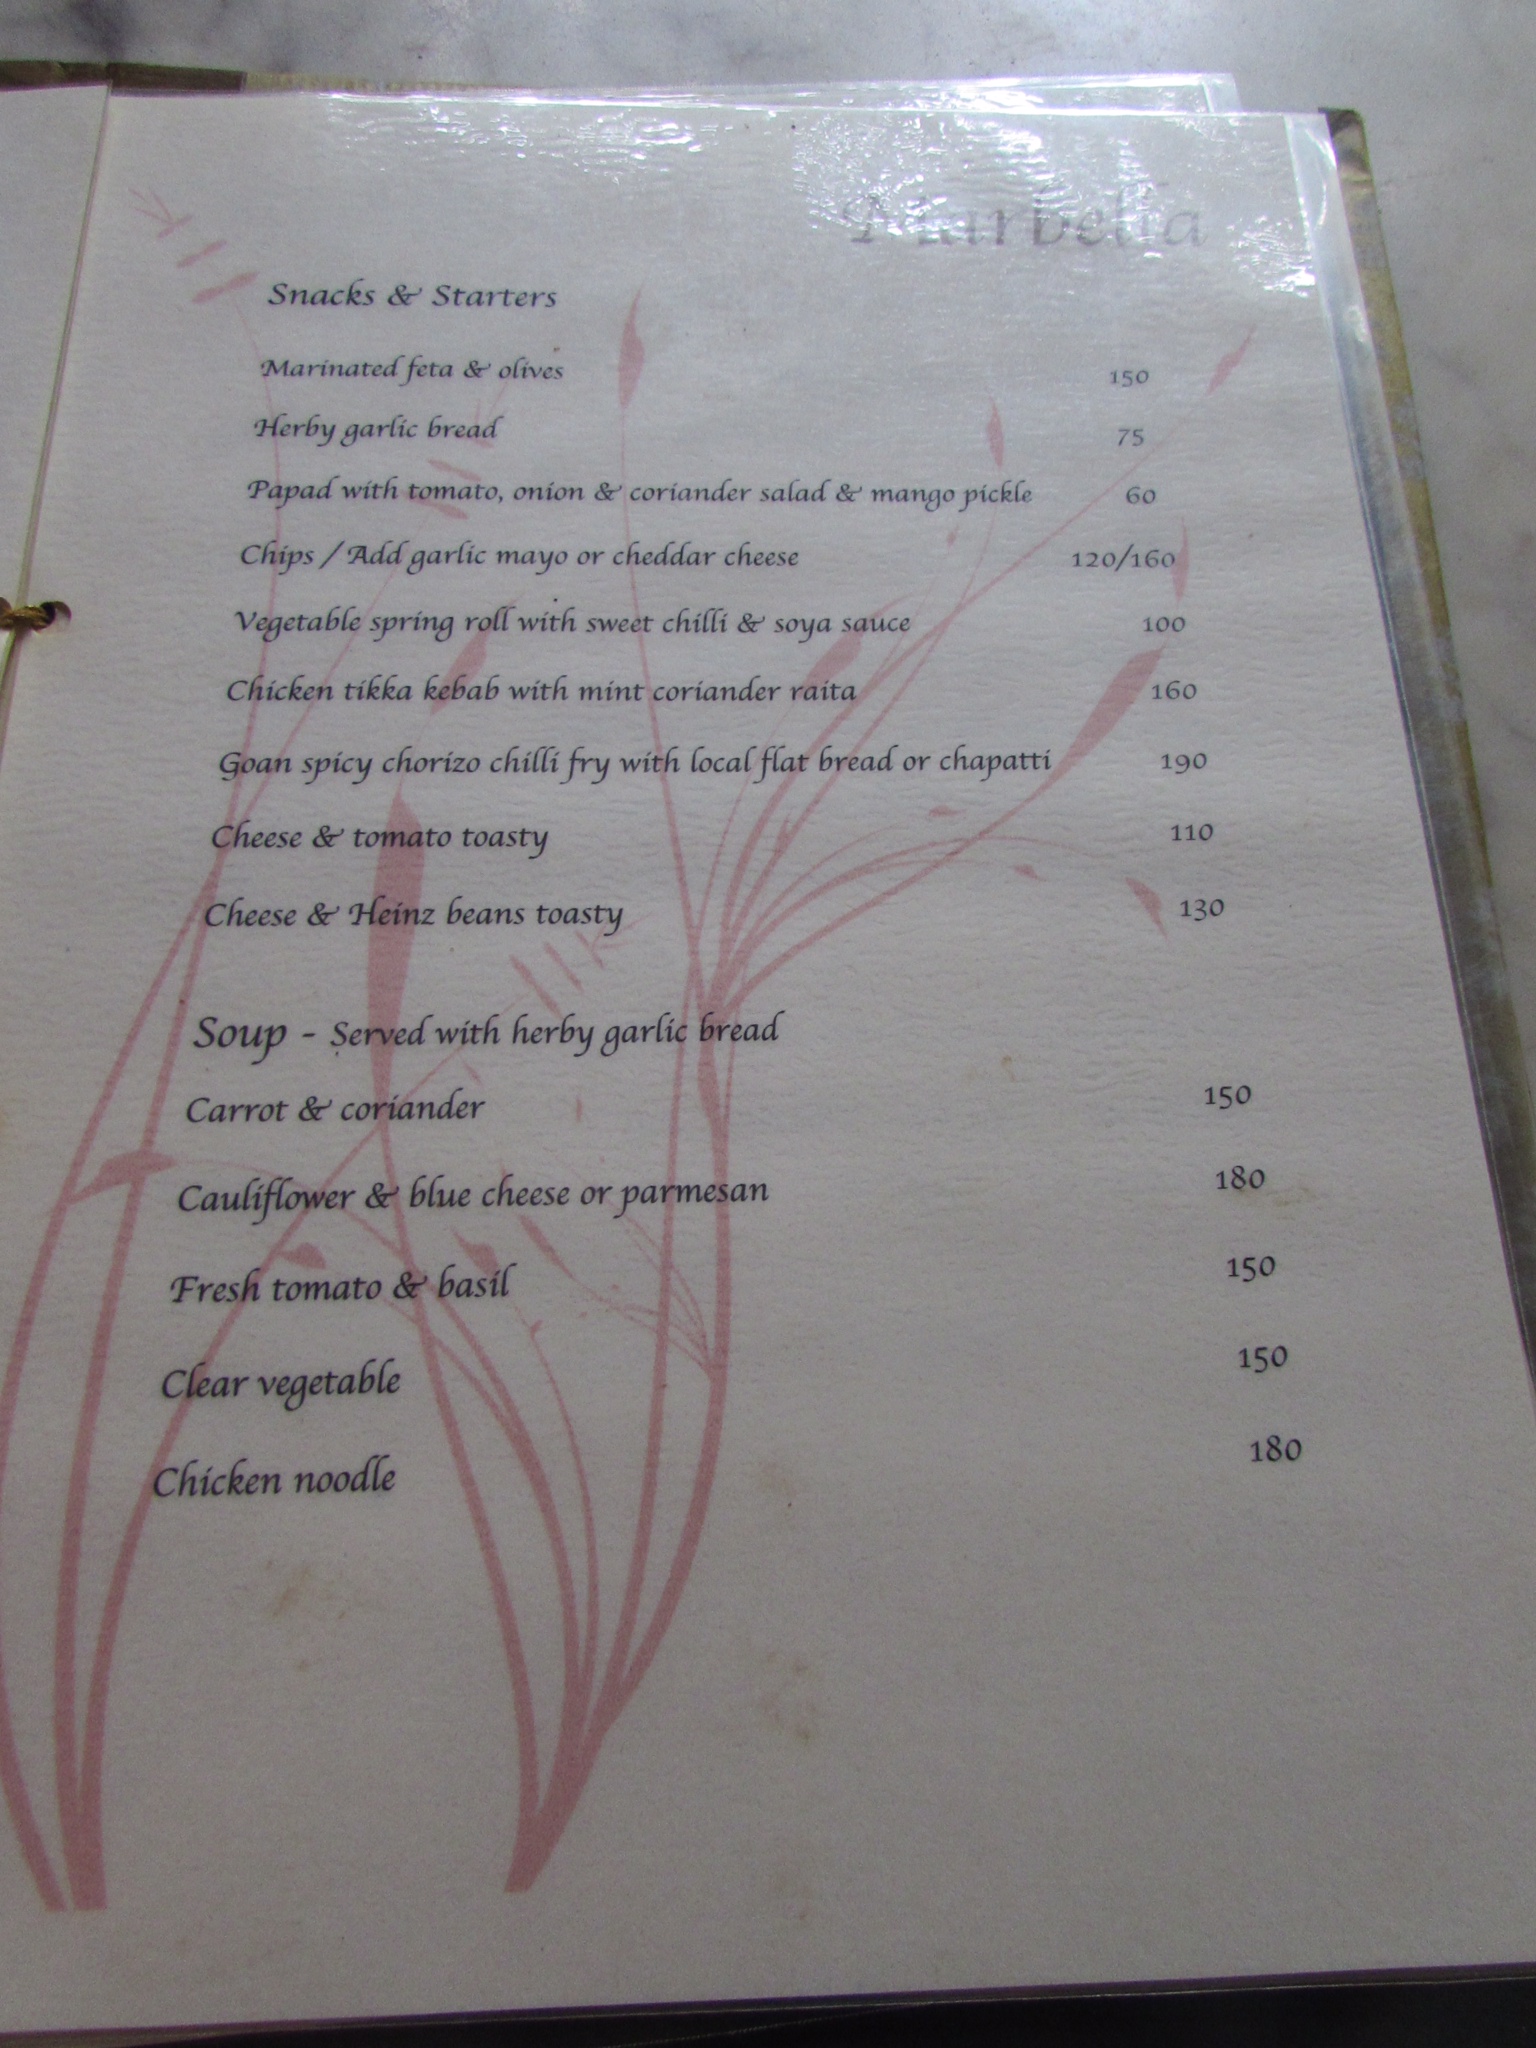 Marbella
Snacks & Starters
Marinated feta & olives 150
Herby garlic bread 75
Papad with tomato, onion & coriander salad & mango pickle 60
Chips / Add garlic mayo or cheddar cheese 120/160
Vegetable spring roll with sweet chilli & soya sauce 100
Chicken tikka kebab with mint coriander raita 160
Goan spicy chorizo chilli fry with local flat bread or chapatti 190
Cheese & tomato toasty 110
Cheese & Heinz beans toasty 130
Soup - Served with herby garlic bread
Carrot & coriander 150
Cauliflower & blue cheese or parmesan 180
Fresh tomato & basil 150
Clear vegetable 150
Chicken noodle 180